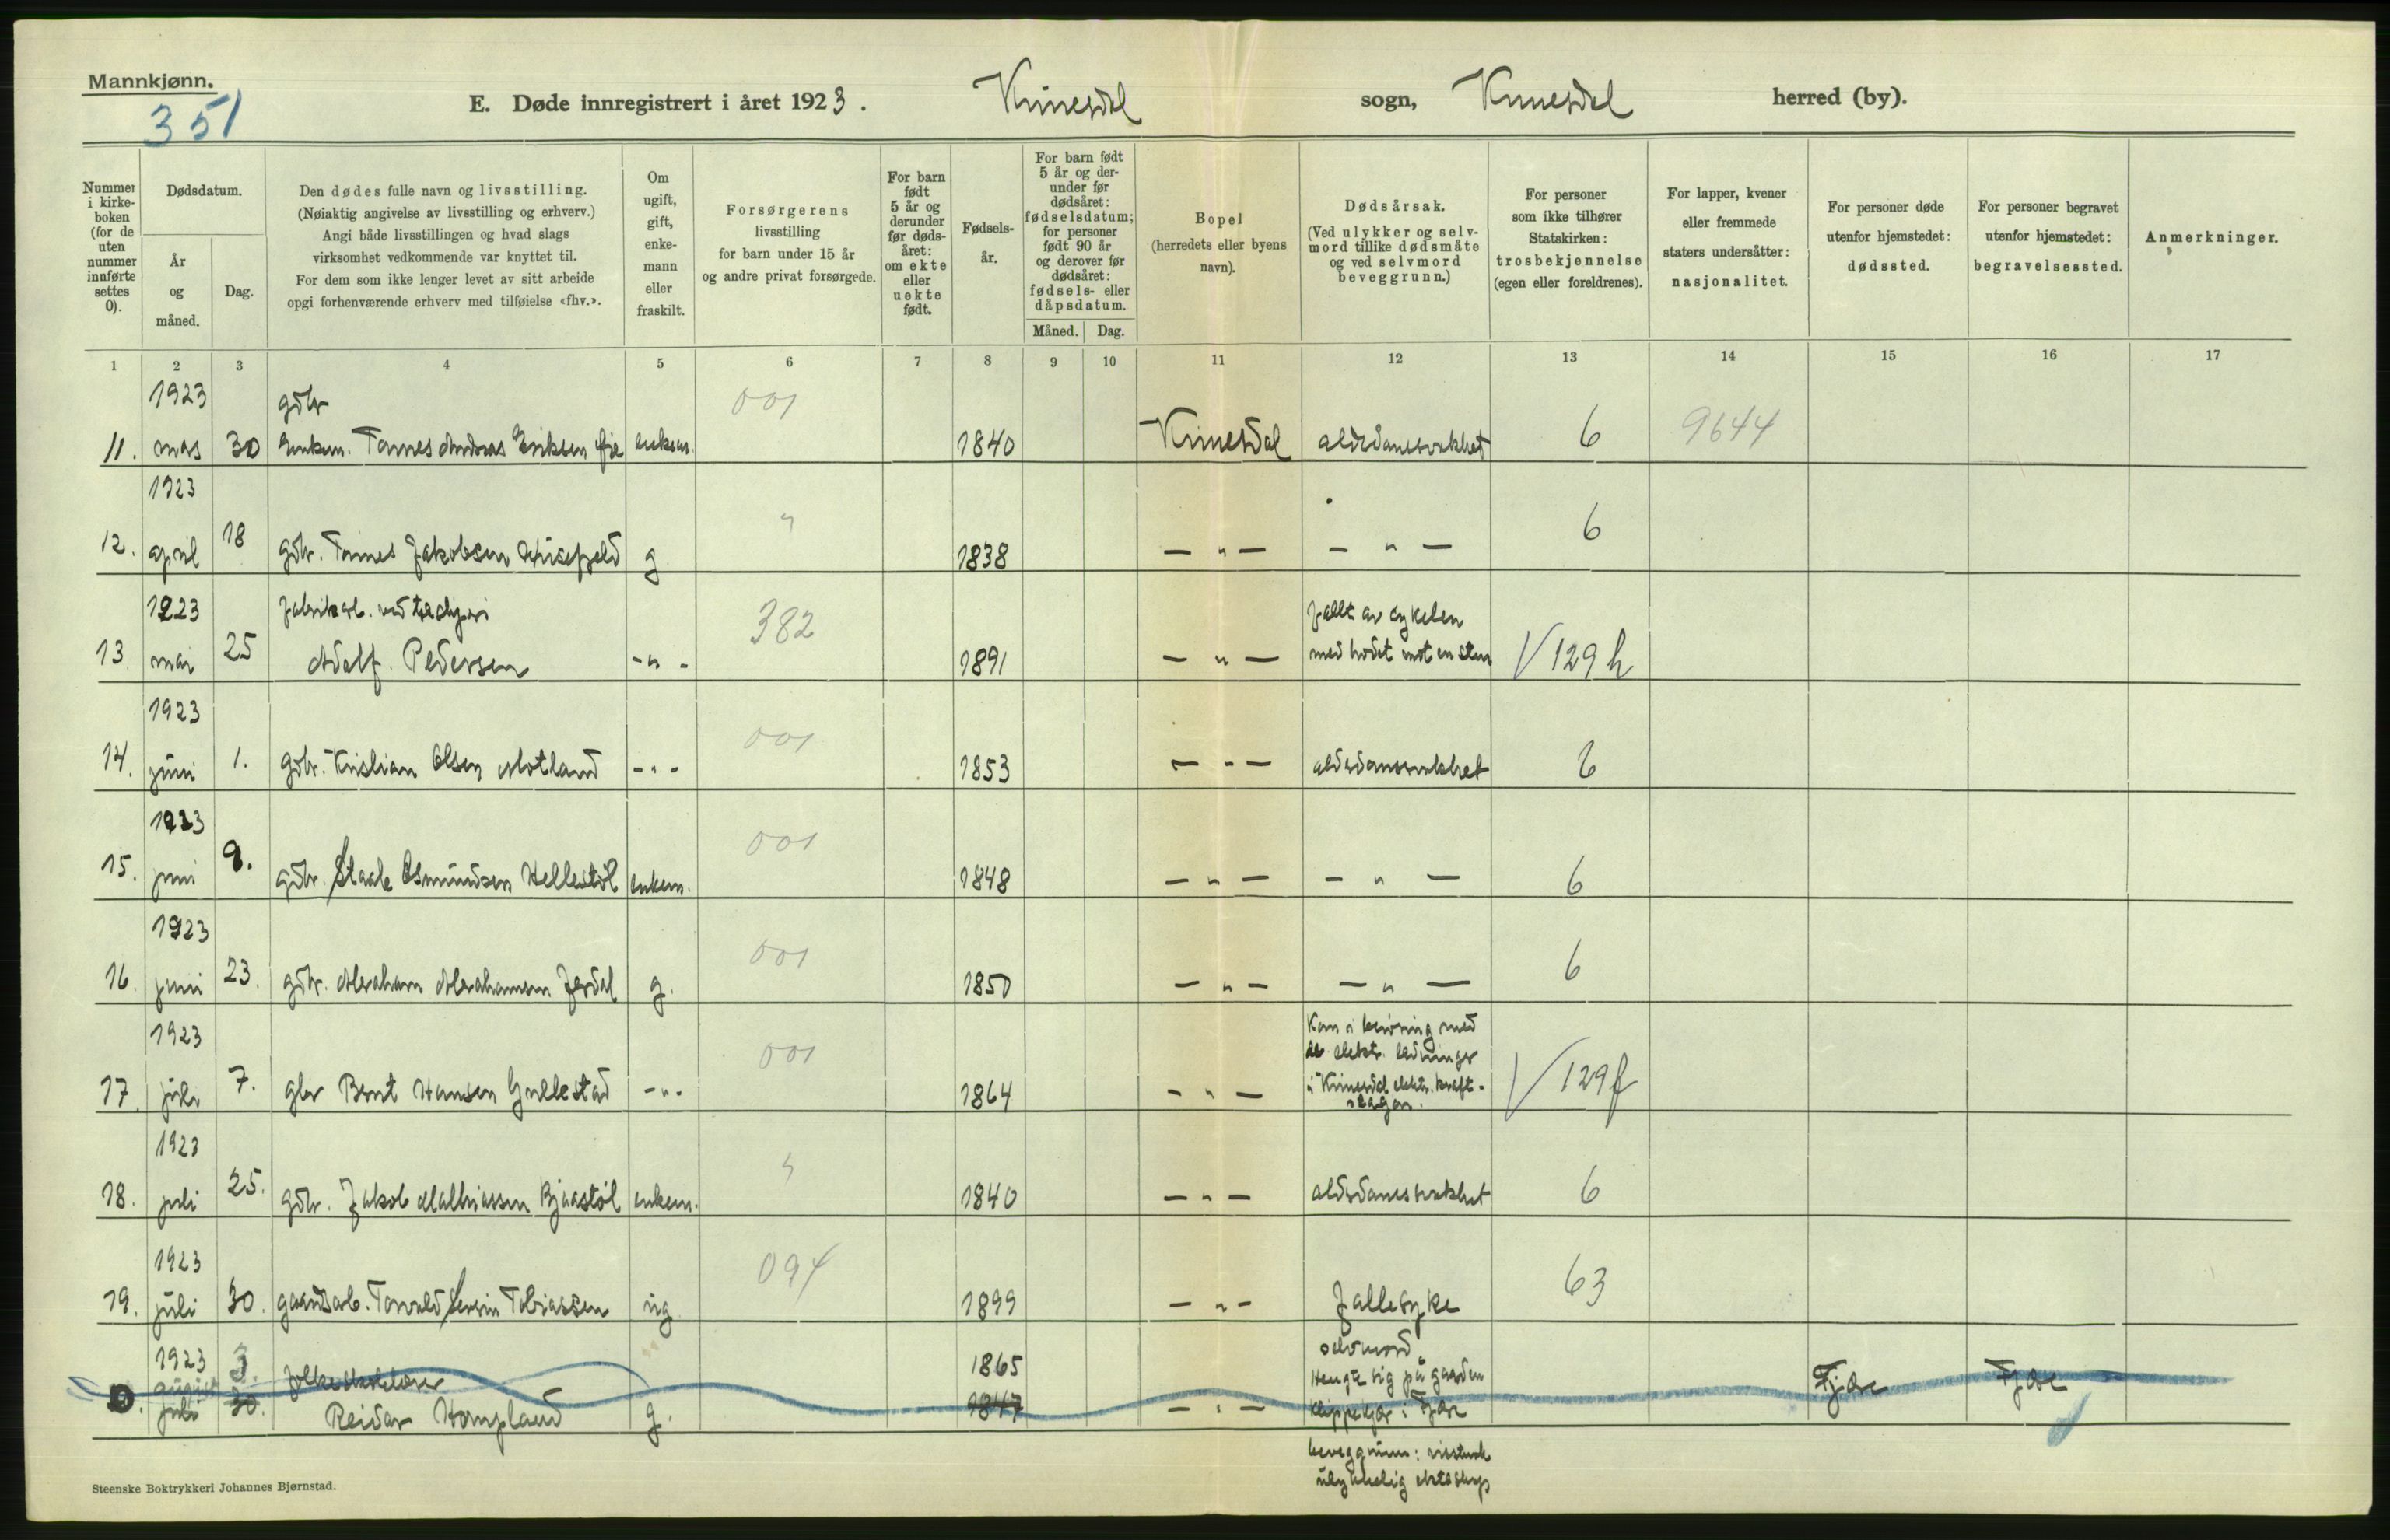 Mannkjønn.
351
E. Døde innregistrert i året 1923. Kvinesdal sogn, Kvinesdal herred (by).
Nummer i kirkeboken (for de uten nummer innførte settes 0).
Dødsdatum.
År og måned.
Dag.
Den dødes fulle navn og livsstilling.
(Nøiaktig angivelse av livsstilling og erhverv.)
Angi både livsstillingen og hvad slags
virksomhet vedkommende var knyttet til.
For dem som ikke lenger levet av sitt arbeide
opgi forhenværende erhverv med tilføielse «fhv.».
Om ugift, gift, enkemann eller fraskilt.
Forsørgerens
livsstilling
for barn under 15 år
og andre privat forsørgede.
For barn født 5 år og derunder før dødsåret: om ekte eller uekte født.
Fødselsår.
For barn født 5 år og derunder før dødsåret: fødselsdatum; for personer født 90 år og derover før dødsåret: fødsels- eller dåpsdatum.
Måned. Dag.
Bopel
(herredets eller byens navn).
Dødsårsak.
(Ved ulykker og selvmord tillike dødsmåte og ved selvmord beveggrunn.)
For personer som ikke tilhører Statskirken: trosbekjennelse (egen eller foreldrenes).
For lapper, kvener eller fremmede staters undersåtter: nasjonalitet.
For personer døde utenfor hjemstedet: dødssted.
For personer begravet utenfor hjemstedet: begravelsessted.
Anmerkninger.
1 2 3 4 5 6 7 8 9 10 11 12 13 14 15 16 17
1923 gdbr 001
11. mars 30 Enkem. Tønnes Andreas Eriksen enkem. 1840 Kvinesdal alderdomssvakhet 6 9644
1923 "
12. april 18 gdbr. Tønnes Jakobsen g 1838 — " — — " — 6
1923 fabrikarb. ved 382 fallt av cykelen
13 mai 25 Adolf Pedersen - " - 1891 — " — med hodet mot en sten V 129 h
1923 001
14. juni 1. gdbr. Kristian Olsen Motland - " - 1853 — " — alderdomssvakhet 6
1923 001
15. juni 9. gdbr. Staale Osmundsen Hellestøl enkem. 1848 — " — — " — 6
1923 001
16. juni 23. gdbr. Abraham Abrahamsen g. 1850 — " — — " — 6
1923 001 Kom i berøring med
de elektr. ledninger
17. juli 7. gbr Bent Hansen Gullestad - " - 1864 — " — i Kvinesdal elektr. kraft- V 129 f
1923 "
18. juli 25. gdbr. Jakob Mathiassen Bjaastøl enkem. 1840 — " — alderdomssvakhet 6
1923 094
19. juli 30. gaardsarb. Torvald Severin Tobiassen ug 1899 — " — fallesyke 63
1923 august 3. folkeskolelærer 1865 selvmord
Hengte sig på gaarden
0. juli 30. Reidar Hompland g. 1847 — " — i Fjære Fjære Fjære
beveggrunn:
ulykkelig ekteskap
Steenske Boktrykkeri Johannes Bjørnstad.